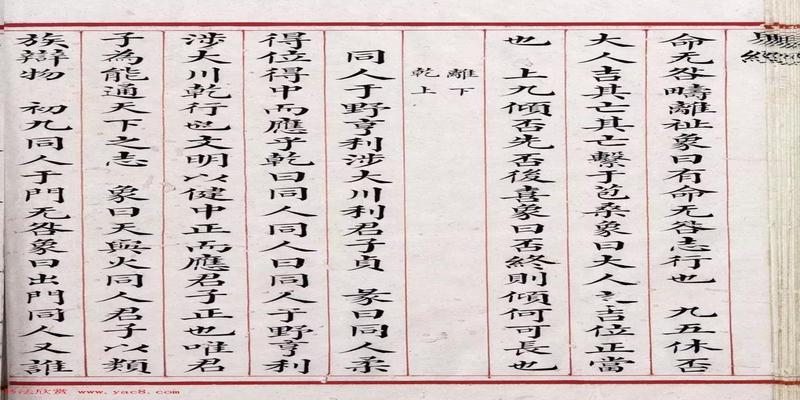 命无咎疇離祉象曰有命无咎志行也　九五休否
大人吉其亡其亡繫于苞桑象曰大人之吉位正當
也　上九傾否先否後喜象曰否終則傾何可長也
離下
乾上
同人于野亨利涉大川利君子貞　彖曰同人柔
得位得中而應乎乾曰同人同人曰同人于野亨利
涉大川乾行也文明以健中正而應君子正也唯君
子為能通天下之志　象曰天與火同人君子以類
族辯物　初九同人于門无咎象曰出門同人又誰
法欣赏 www.yac8.com